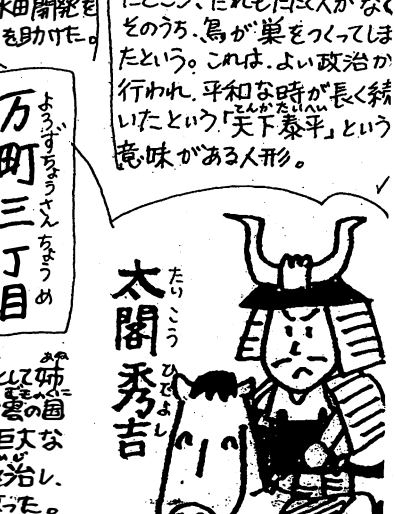 水田開発を
を助けた。
そのうち、鳥が巣をつくってしま
たという。これは、よい政治が
行われ、平和な時が長く続
いたという「天下泰平」という
てんかたいへい
意味がある人形。
万町三丁目
よろずちょうさんちょうめ
太閤秀吉
たいこうひでよし
として姉
あね
雲の国
巨大な
治し、
った。